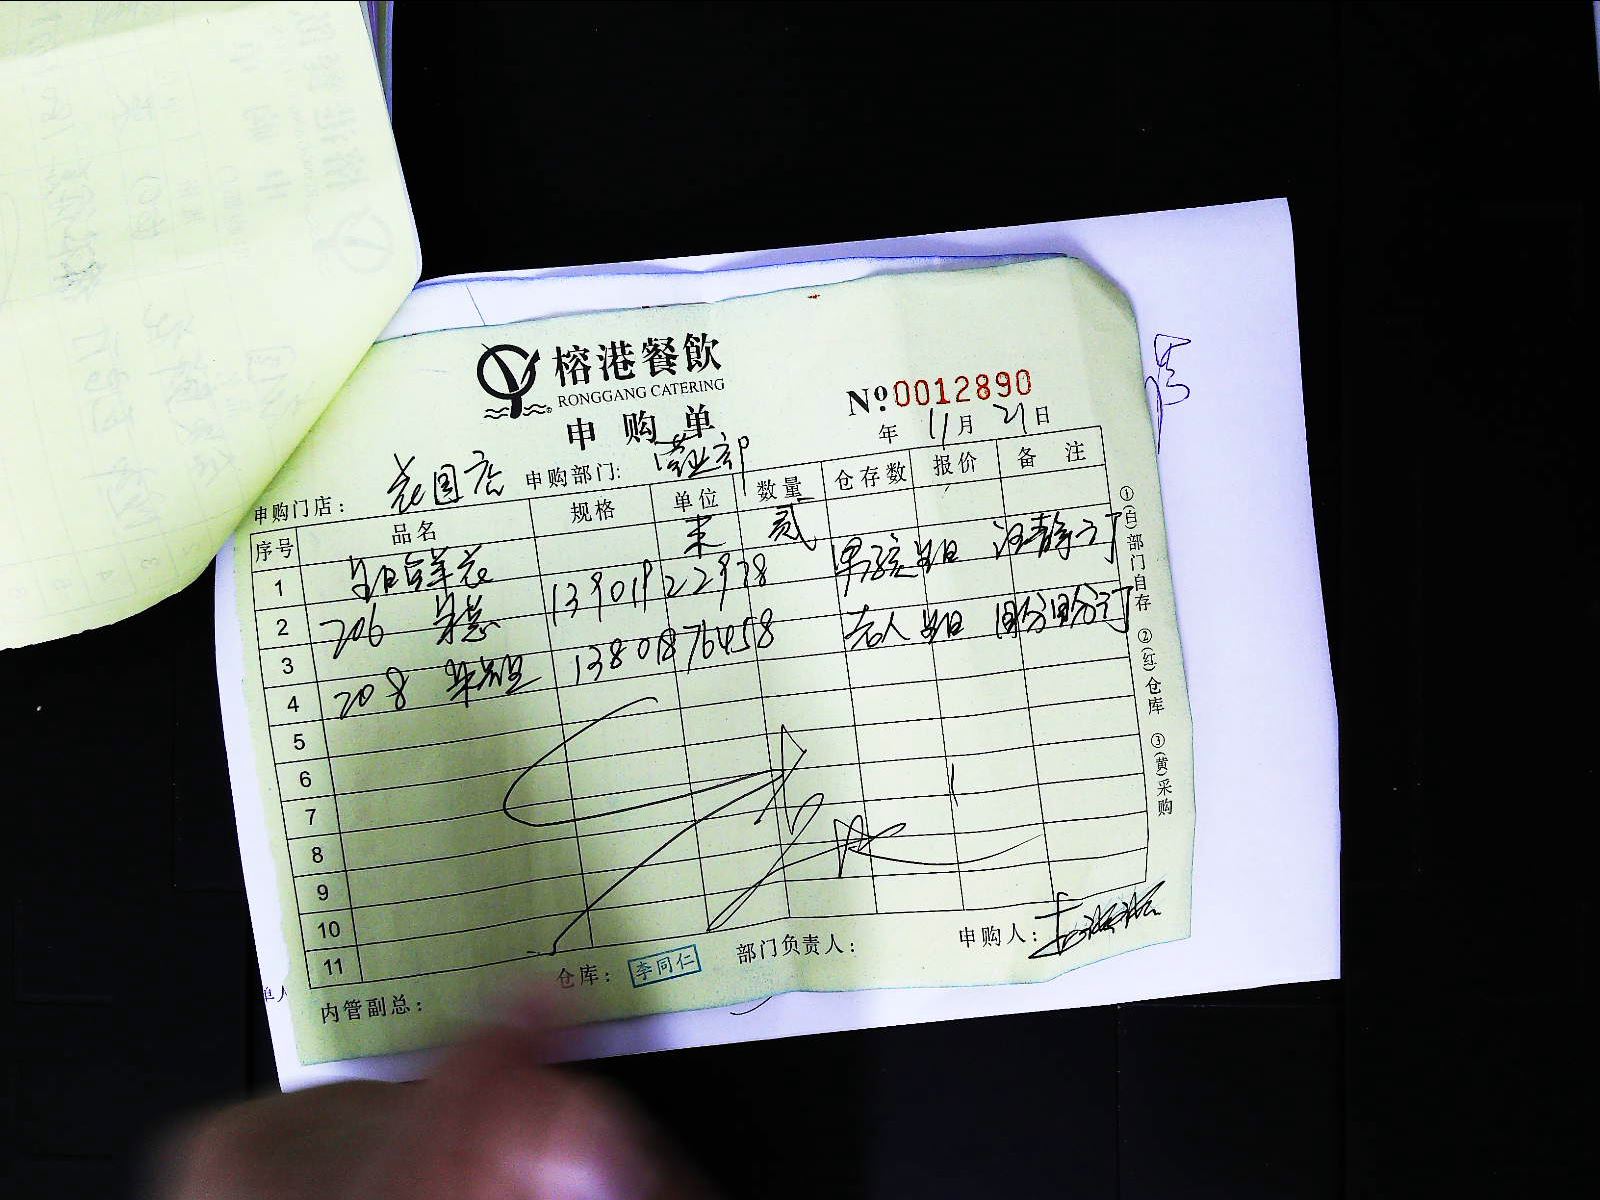 榕港餐飲
RONGGANG CATERING
申购单
№ 0012890
年 11月 21日
申购门店： 花园店 申购部门： 营业部
序号 品名 规格 单位 数量 仓存数 报价 备注
1 生日鲜花 束 贰
2 206 朱总 13901922978 男孩生日 汪静订
3 208 朱 13801876458 老人生日 订
4
5
6
7
8
9
10
11
内管副总： 仓库： 李同仁 部门负责人： 申购人：
①(白)部门自存 ②(红)仓库 ③(黄)采购